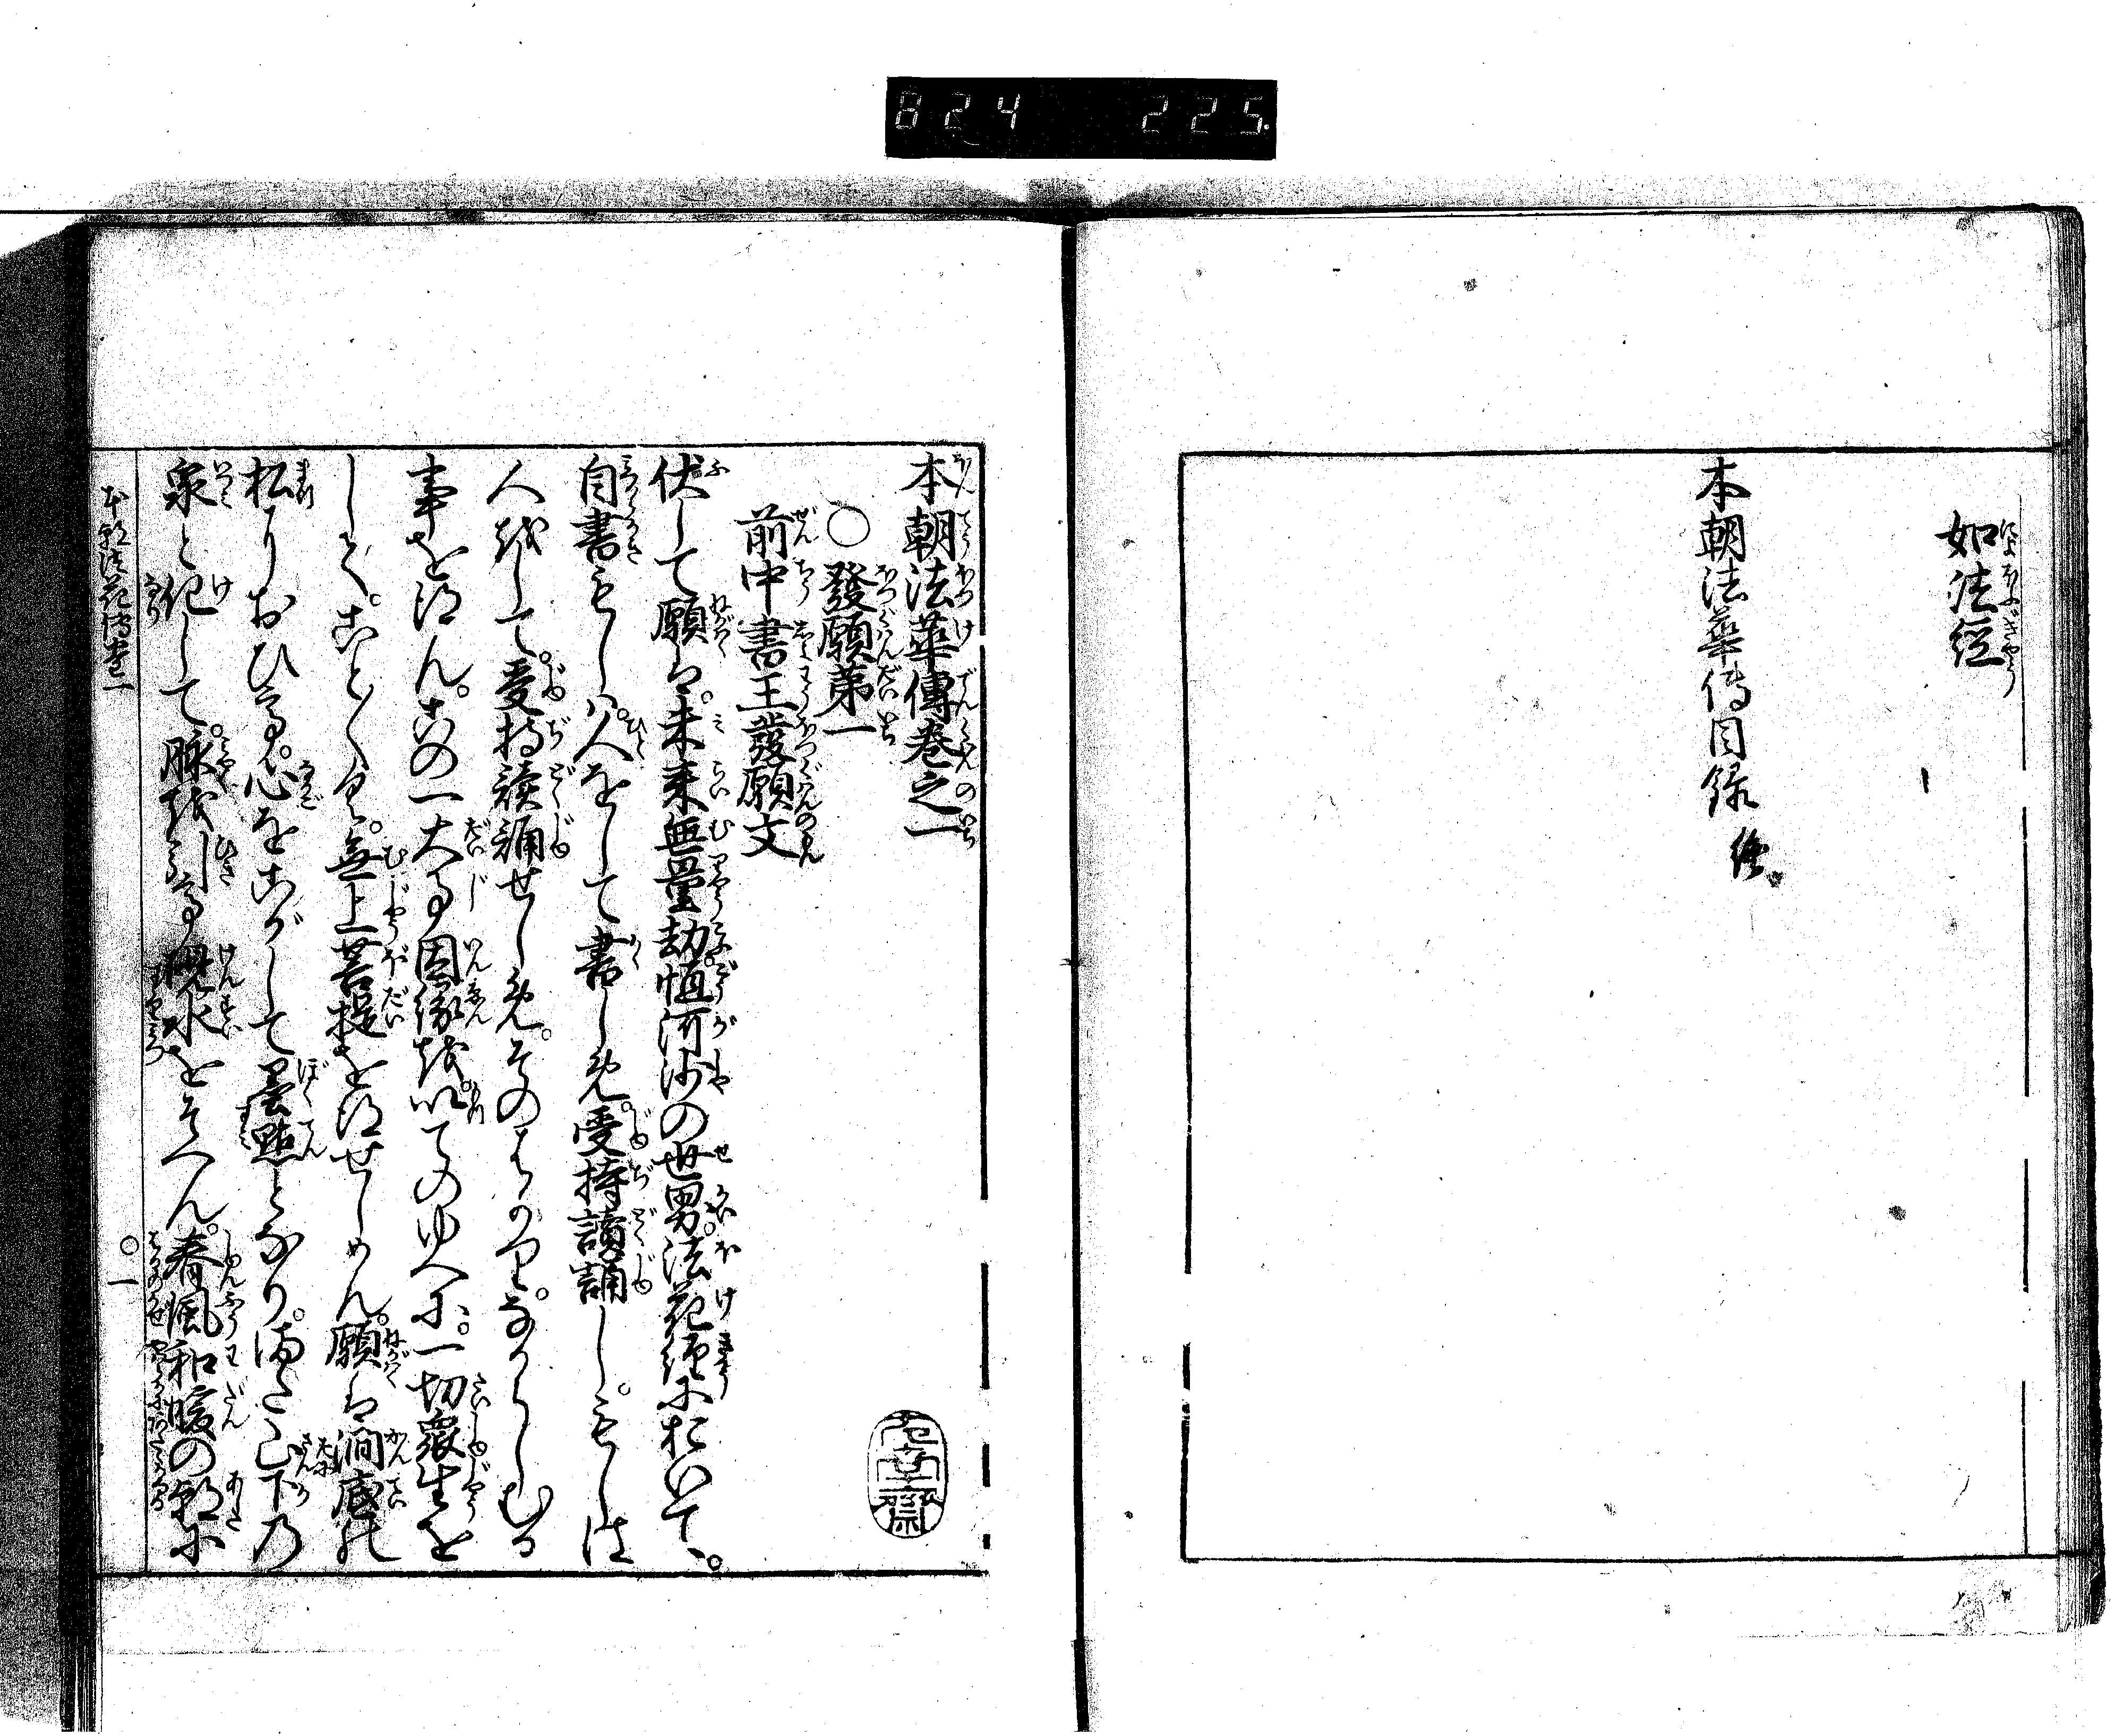 824 225
如法経
本朝法華伝目録終
本朝法華傳巻之一
○發願第一
前中書王發願文
伏して願は。未来無量劫。恒河沙の世界。法花経におゐて。
自書もし人をして書しめ。受持讀誦し。もしは
人をして。受持讀誦せしめ。そのはかりことなからしむる
事を得ん。この一大事因縁を以てのゆへに。一切衆生を
してことく。無上菩提を得せしめん。願は澗底の
松りおひ。心をこがして墨點となり。山下乃
泉と化して。脉を引硯水をそへん。春風和暖の朝に
本朝法花傳巻一
○一